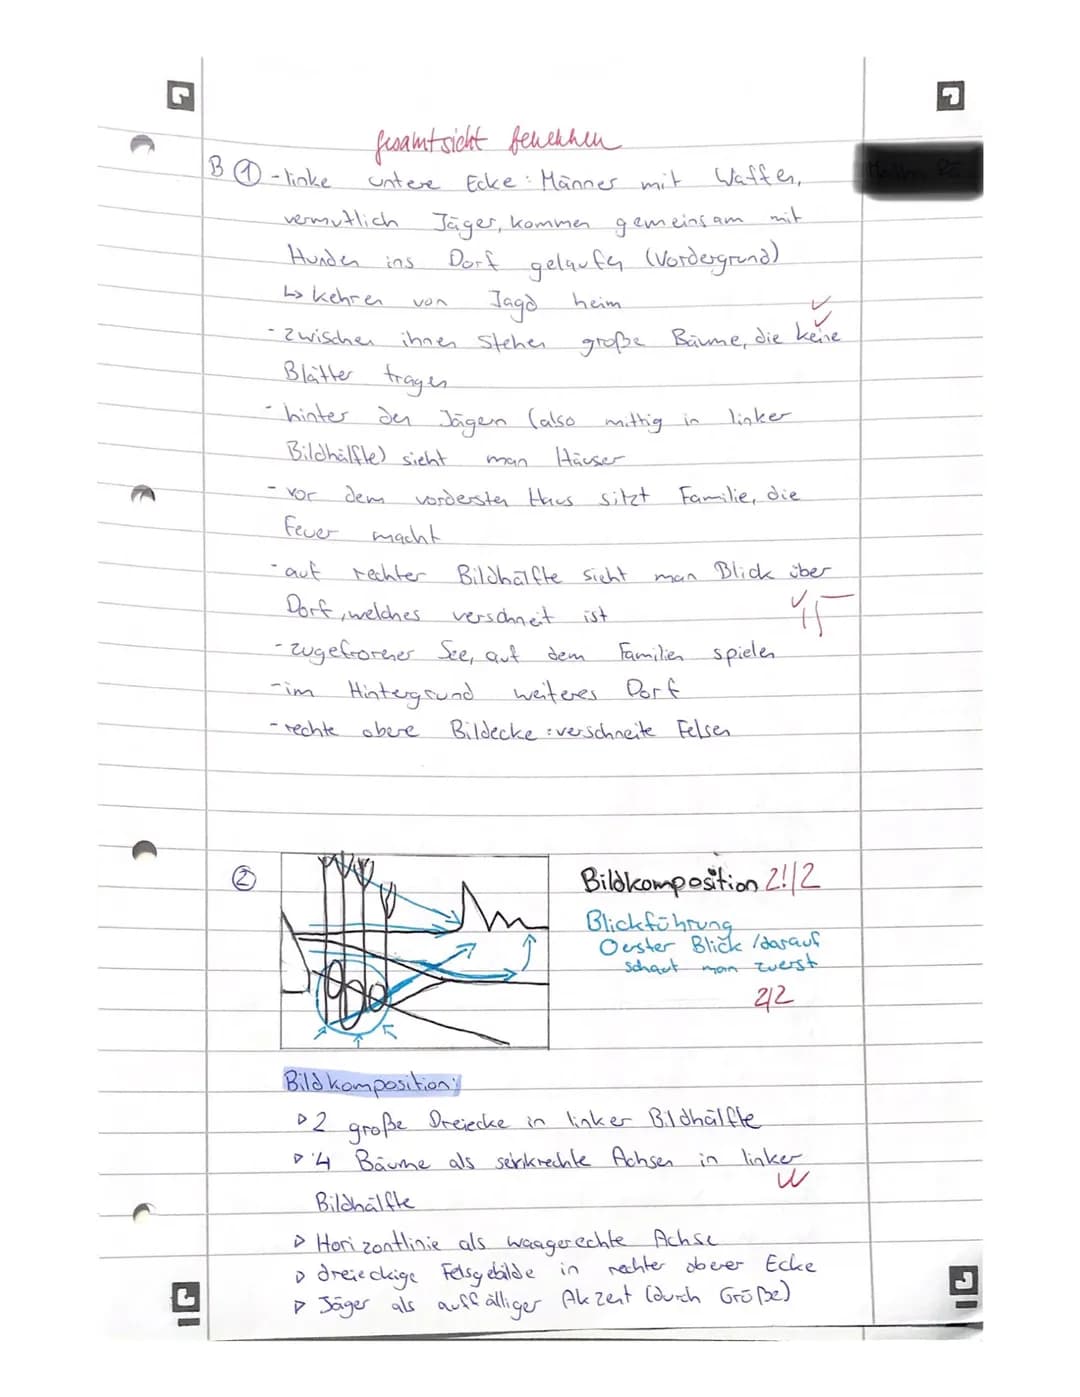 Gesamtsicht
B ① - linke untere Ecke: Männer mit Waffen,
vermutlich Jäger, kommen gemeinsam mit
Hunden ins Dorf gelaufen (Vordergrund)
↳ kehren von Jagd heim
- zwischen ihnen stehen große Bäume, die keine
Blätter tragen
- hinter den Jägern (also mittig in linker
Bildhälfte) sieht man Häuser
- vor dem vordersten Haus sitzt Familie, die
Feuer macht
- auf rechter Bildhälfte sieht man Blick über
Dorf, welches verschneit ist
- zugefrorener See, auf dem Familien spielen
- im Hintergrund weiteres Dorf
- rechte obere Bildecke: verschneite Felsen
②
Bildkomposition 2!/2
Blickführung
O erster Blick / darauf
schaut man zuerst
2/2
Bildkomposition:
▷ 2 große Dreiecke in linker Bildhälfte
▷ 4 Bäume als senkrechte Achsen in linker
Bildhälfte
▷ Horizontlinie als waagerechte Achse
▷ dreieckige Felsgebilde in rechter oberer Ecke
▷ Jäger als auffälliger Akzent (durch Größe)